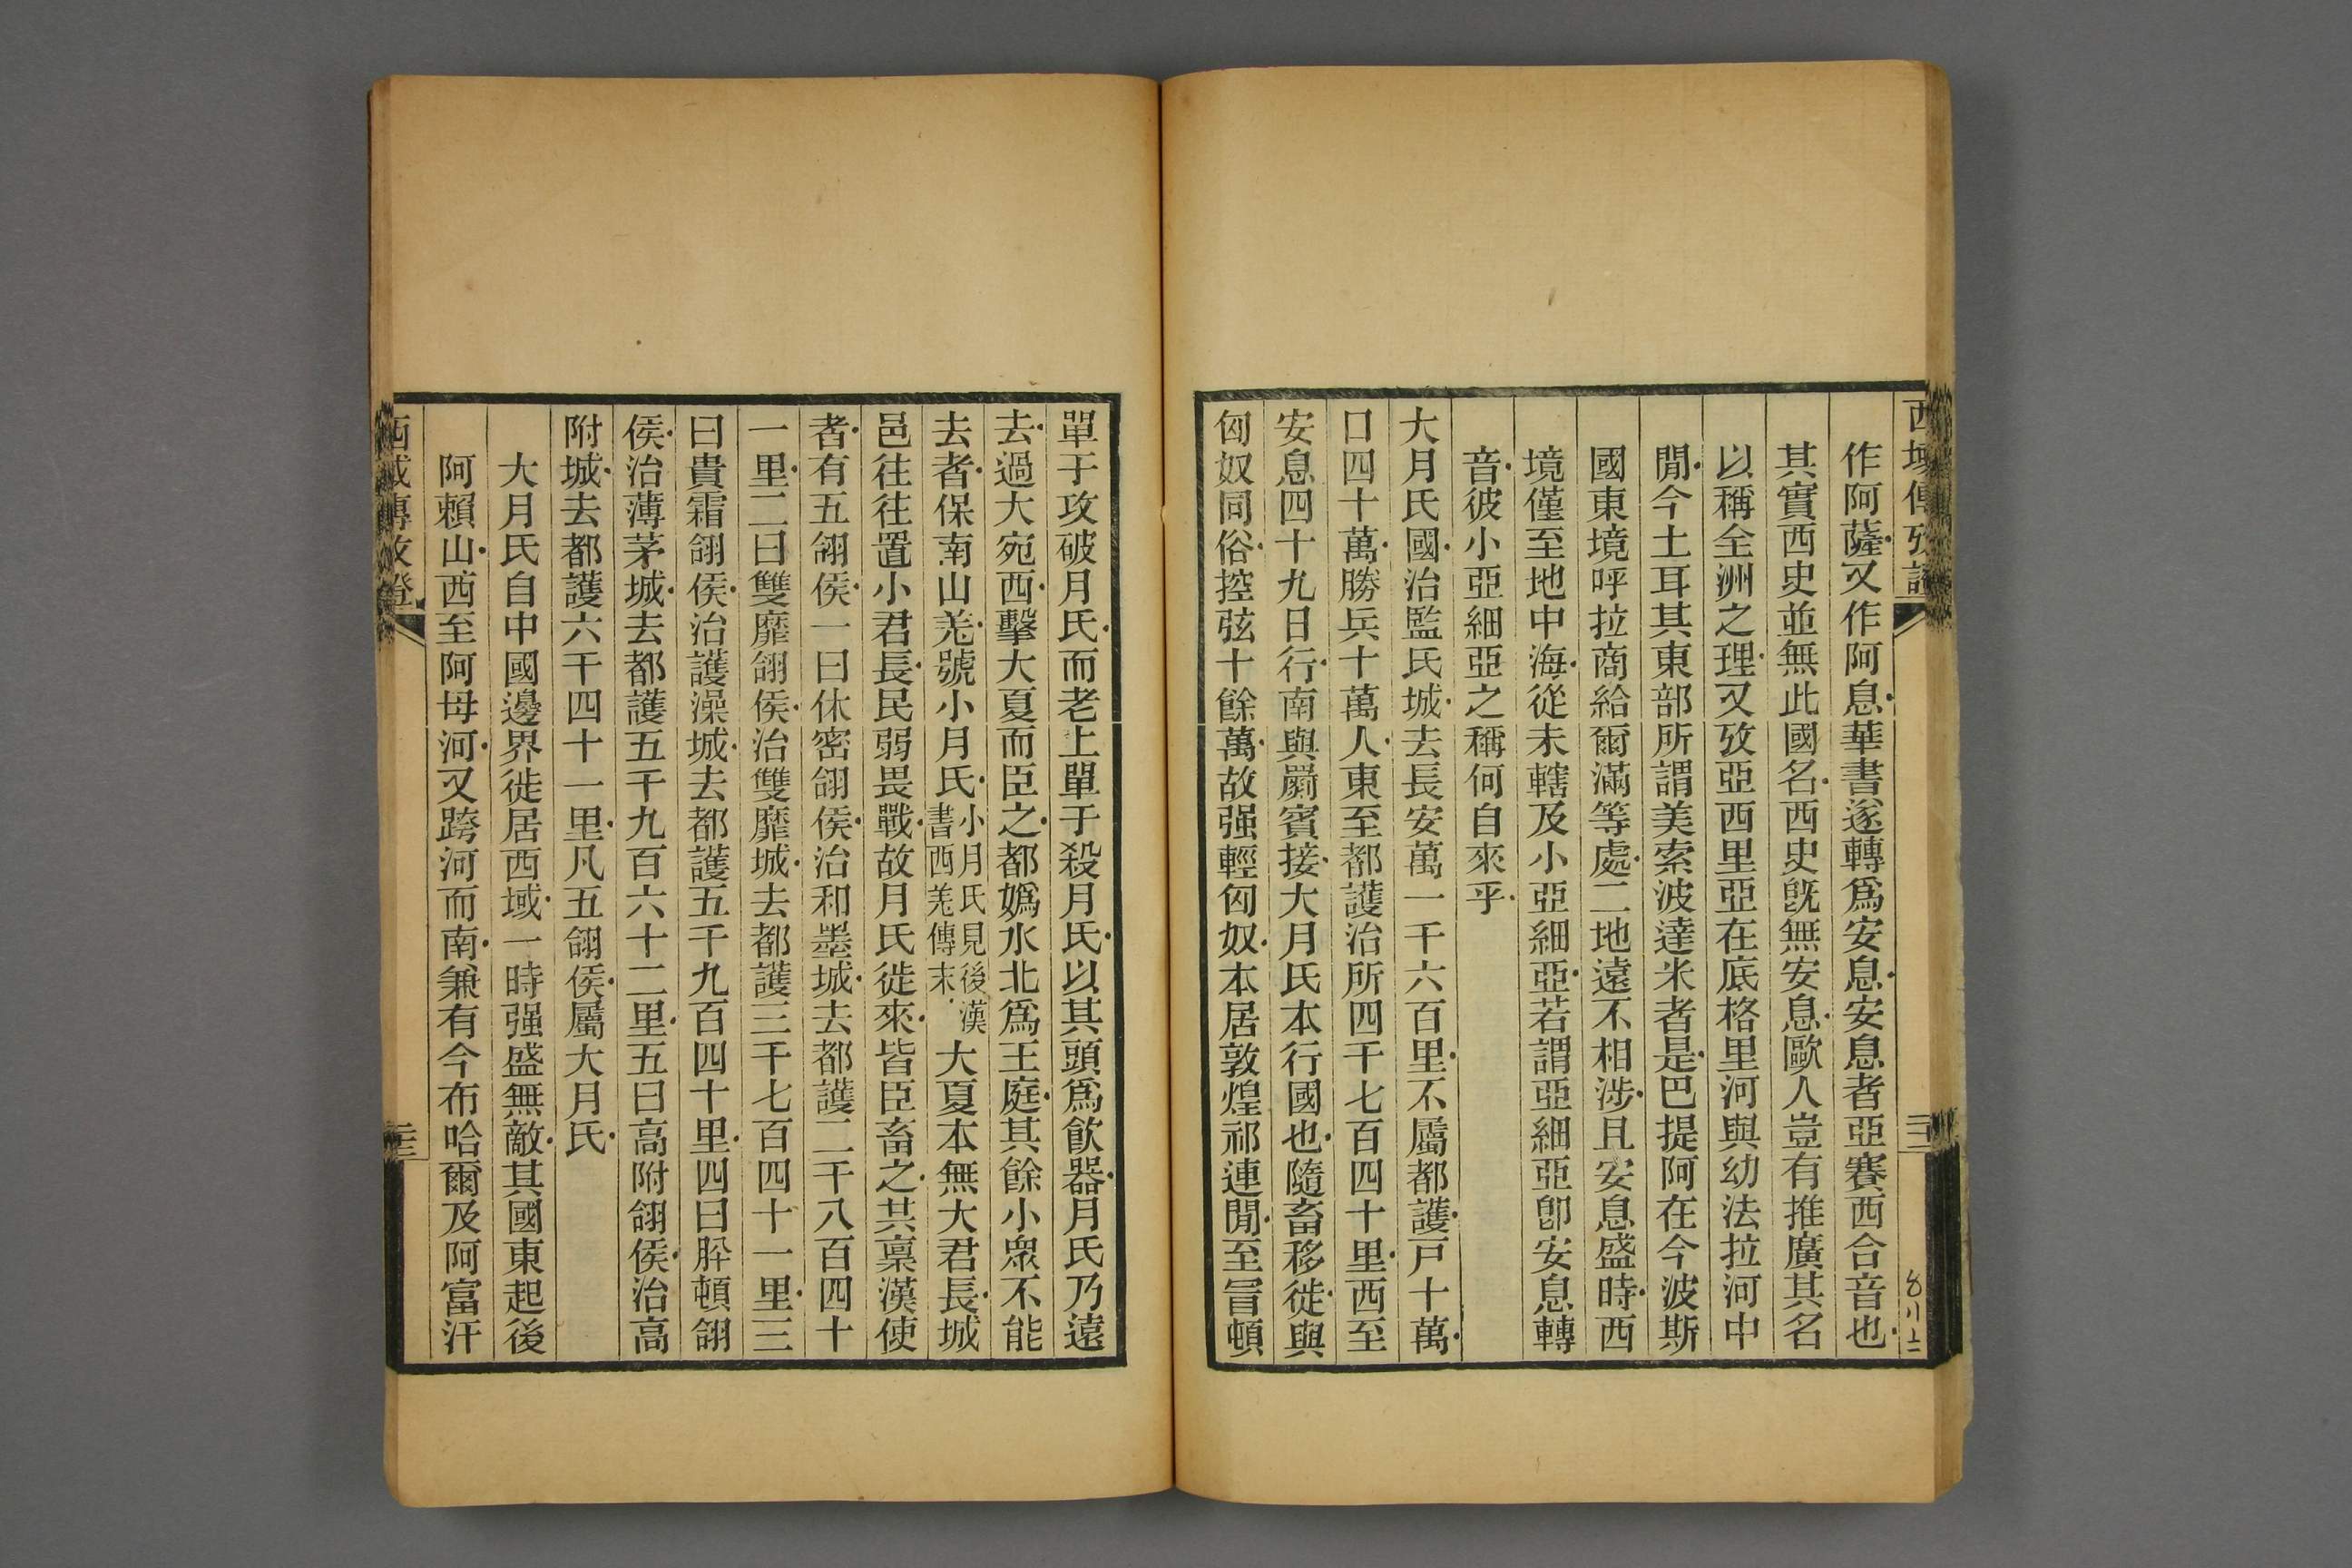 西域傳攷證
作阿薩又作阿息華書遂轉爲安息安息者亞賽西合音也
其實西史並無此國名西史旣無安息歐人豈有推廣其名
以稱全洲之理又攷亞西里亞在底格里河與幼法拉河中
閒今土耳其東部所謂美索波達米者是巴提阿在今波斯
國東境呼拉商給爾滿等處二地遠不相涉且安息盛時西
境僅至地中海從未轄及小亞細亞若謂亞細亞卽安息轉
音彼小亞細亞之稱何自來乎
大月氏國治監氏城去長安萬一千六百里不屬都護戸十萬
口四十萬勝兵十萬人東至都護治所四千七百四十里西至
安息四十九日行南與罽賓接大月氏本行國也隨畜移徙與
匈奴同俗控弦十餘萬故强輕匈奴本居敦煌祁連閒至冒頓
單于攻破月氏而老上單于殺月氏以其頭爲飮器月氏乃遠
去過大宛西擊大夏而臣之都嬀水北爲王庭其餘小眾不能
去者保南山羗號小月氏小月氏見後漢書西羗傳末大夏本無大君長城
邑往往置小君長民弱畏戰故月氏徙來皆臣畜之其稟漢使
者有五翖侯一曰休密翖侯治和墨城去都護二千八百四十
一里二曰雙靡翖侯治雙靡城去都護三千七百四十一里三
曰貴霜翖侯治護澡城去都護五千九百四十里四曰肸頓翖
侯治薄茅城去都護五千九百六十二里五曰高附翖侯治高
附城去都護六千四十一里凡五翖侯屬大月氏
大月氏自中國邊界徙居西域一時强盛無敵其國東起後
阿賴山西至阿母河又跨河而南兼有今布哈爾及阿富汗
西域傳攷證